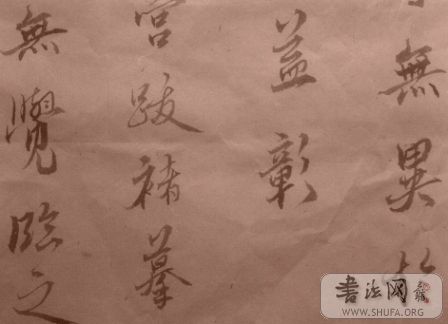 無異於
益彰
宮跋褚摹
無覺臨之
書法网
WWW.SHUFA.ORG